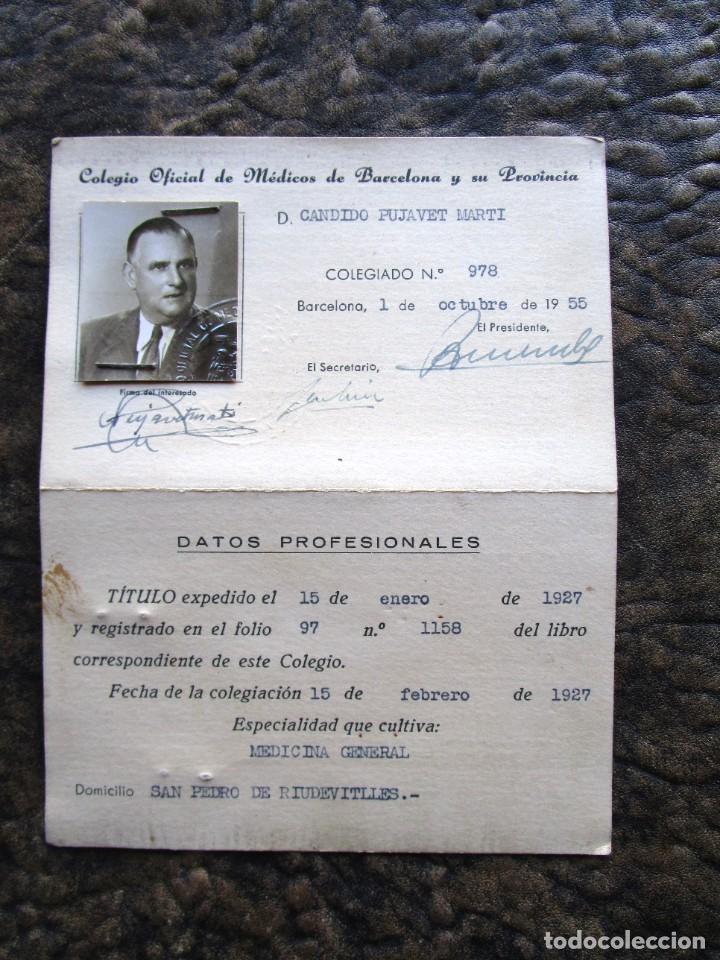 Colegio Oficial de Médicos de Barcelona y su Provincia
D. CANDIDO PUJAVET MARTI
COLEGIADO N.º 978
Barcelona, 1 de octubre de 1955
El Presidente,
El Secretario,
Firma del interesado
DATOS PROFESIONALES
TÍTULO expedido el 15 de enero de 1927
y registrado en el folio 97 n.º 1158 del libro
correspondiente de este Colegio.
Fecha de la colegiación 15 de febrero de 1927
Especialidad que cultiva:
MEDICINA GENERAL
Domicilio SAN PEDRO DE RIUDEVITLLES.-
todocoleccion